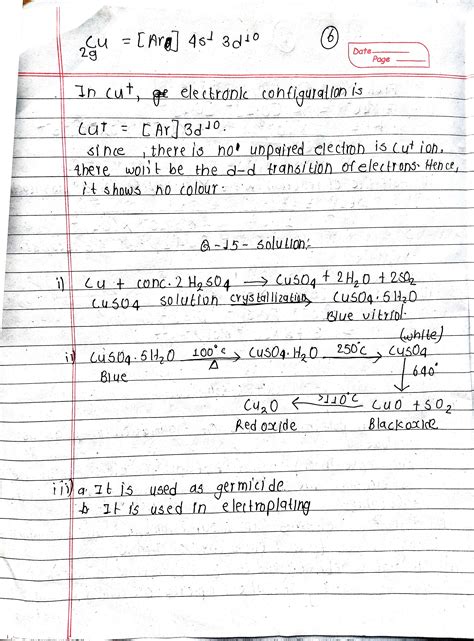 29Cu = [Ar] 4s¹ 3d¹⁰
6
Date
Page
In Cu⁺, electronic configuration is
Cu⁺ = [Ar] 3d¹⁰.
since, there is no unpaired electron is Cu⁺ ion.
there won't be the d-d transition of electrons. Hence,
it shows no colour.
Q-15- solution:
i) Cu + conc. 2H₂SO₄ → CuSO₄ + 2H₂O + 2SO₂
CuSO₄ solution crystallization→ CuSO₄·5H₂O
Blue vitriol.
(white)
ii) CuSO₄·5H₂O 100°c→ CuSO₄·H₂O 250°c→ CuSO₄
Δ
Blue
↓ 640°
Cu₂O ← >110°c CuO + SO₂
Red oxide Black oxide
iii) a. It is used as germicide
b It is used in electroplating